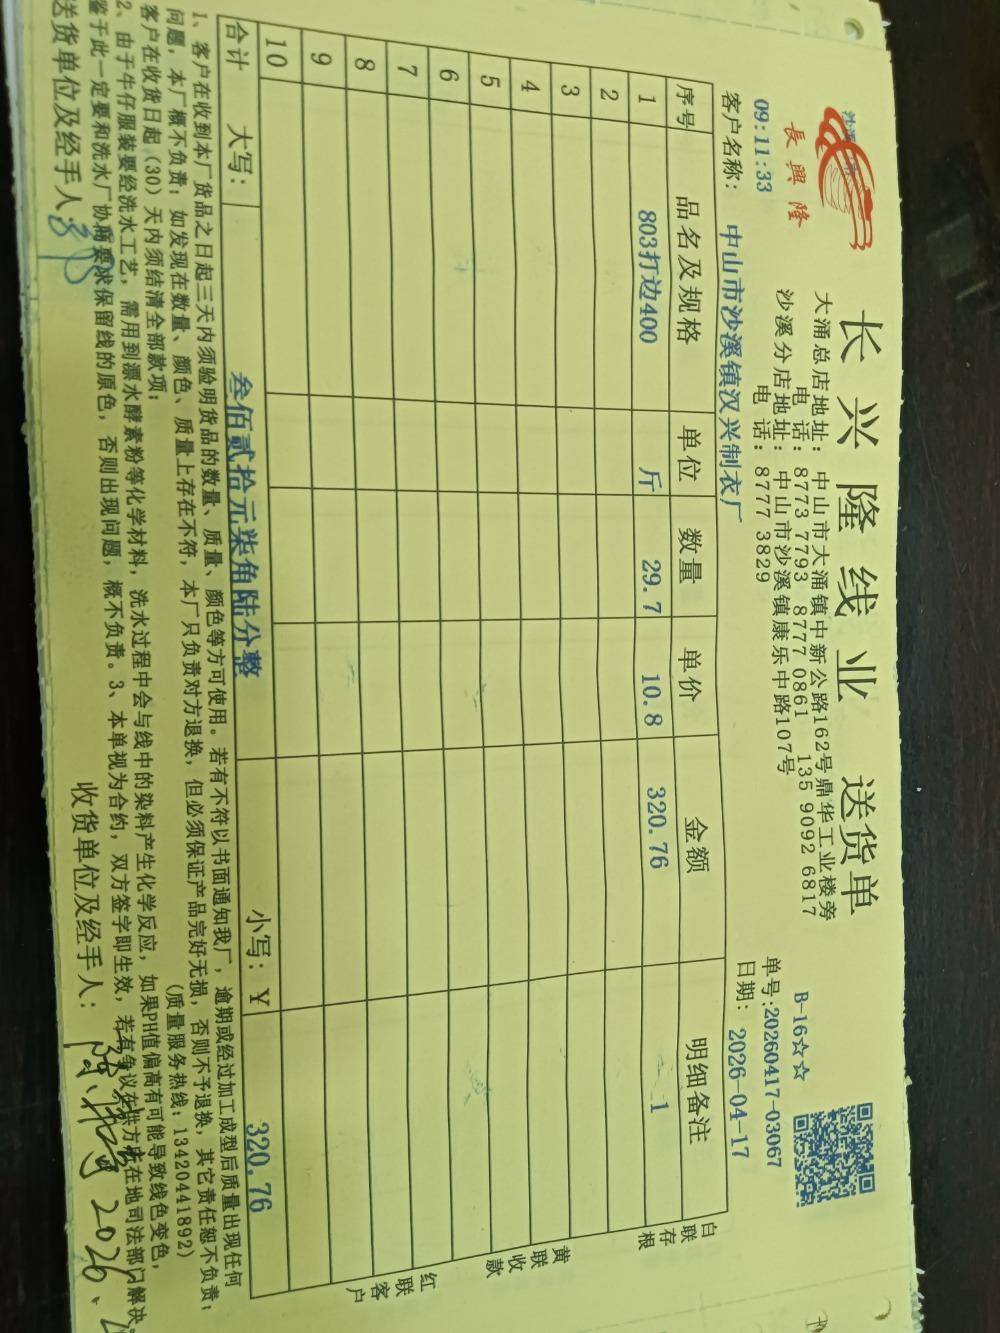 長興隆
长兴隆线业 送货单
大涌总店地址: 中山市大涌镇中新公路162号鼎华工业楼旁
电 话: 8773 7793 8777 0861 135 9092 6817
沙溪分店地址: 中山市沙溪镇康乐中路107号
电 话: 8777 3829
B-16☆☆
单号:20260417-03067
09:11:33
日期: 2026-04-17
客户名称: 中山市沙溪镇汉兴制衣厂
序号 品名及规格 单位 数量 单价 金额 明细备注
1 803打边400 斤 29.7 10.8 320.76 1
2
3
4
5
6
7
8
9
10
合计 大写: 叁佰贰拾元柒角陆分整 小写: ¥ 320.76
白联存根
黄联收款
红联客户
1、客户在收到本厂货品之日起三天内须验明货品的数量、质量、颜色等方可使用。若有不符以书面通知我厂，逾期或经过加工成型后质量出现任何
问题，本厂概不负责；如发现在数量、颜色、质量上存在不符，本厂只负责对方退换，但必须保证产品完好无损，否则不予退换，其它责任恕不负责；
客户在收货日起（30）天内须结清全部款项； (质量服务热线: 13420441892)
2、由于牛仔服装要经洗水工艺，需用到漂水酵素粉等化学材料，洗水过程中会与线中的染料产生化学反应，如果PH值偏高有可能导致线色变色，
鉴于此一定要和洗水厂协商要求保留线的原色，否则出现问题，概不负责。3、本单视为合约，双方签字即生效，若有争议在供方所在地司法部门解决
送货单位及经手人: 收货单位及经手人:
2026.